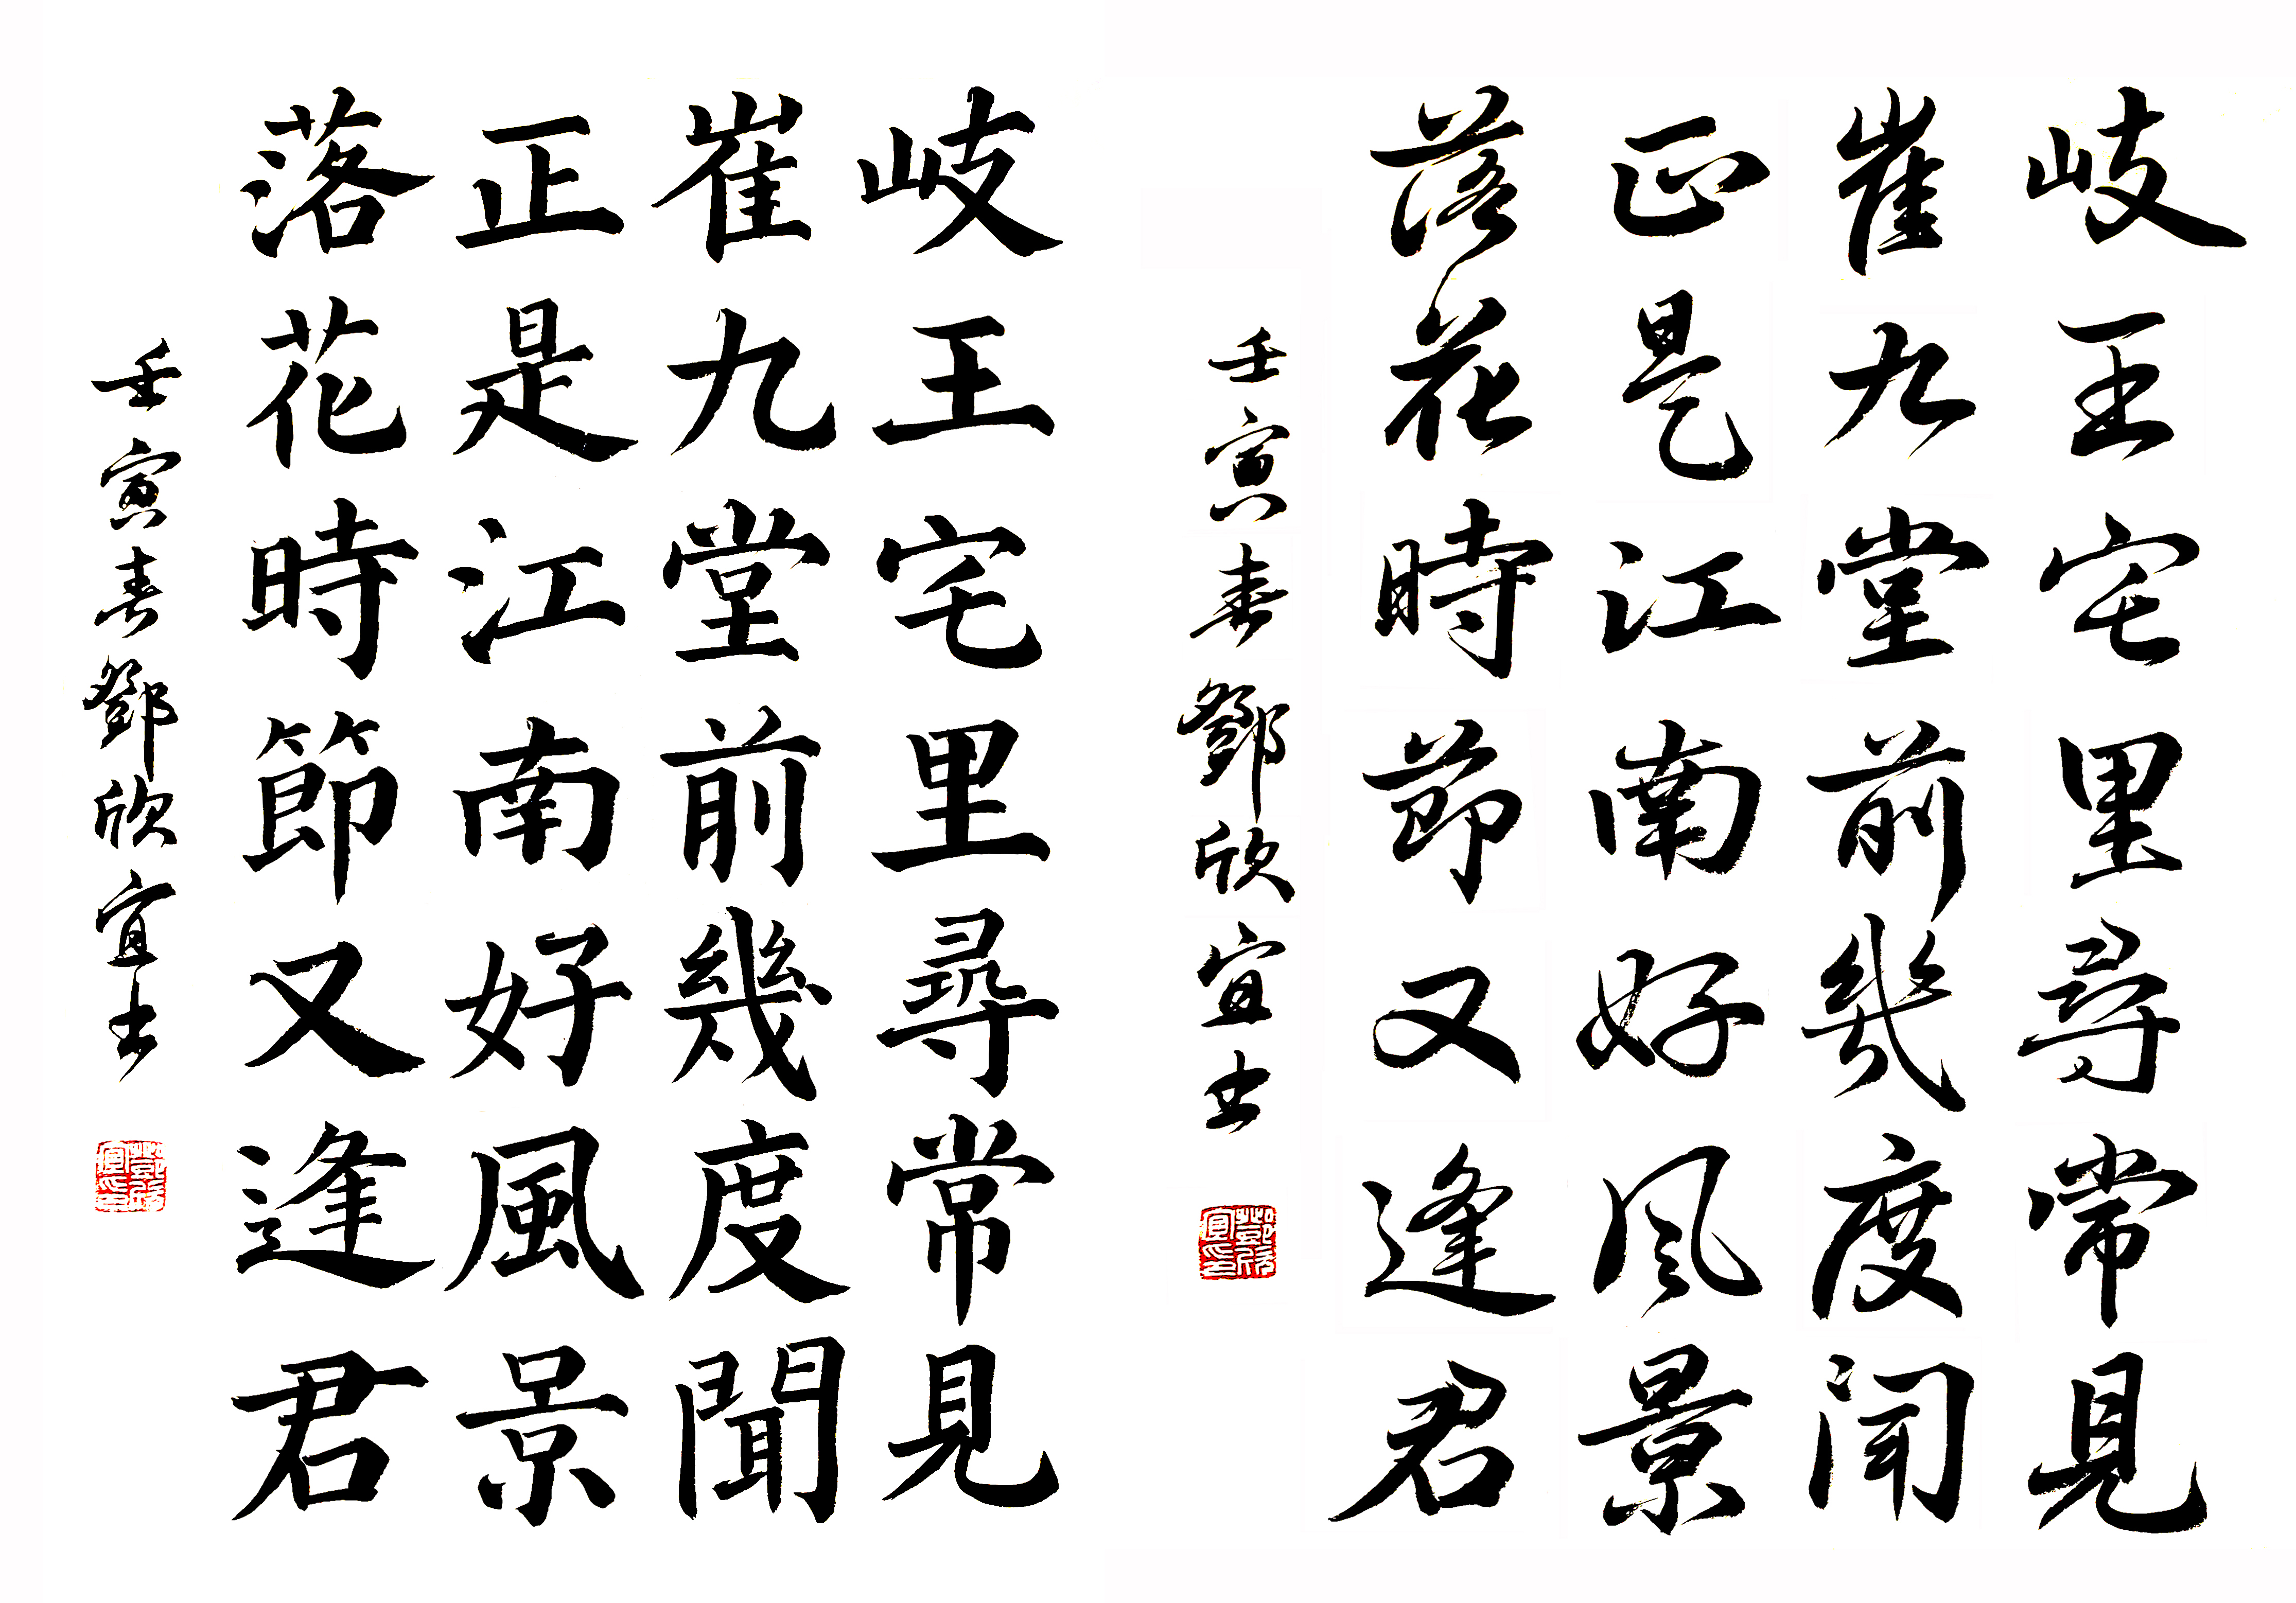 岐王宅里尋常見
崔九堂前幾度聞
正是江南好風景
落花時節又逢君
壬寅春鄧欣宜书
岐王宅里尋常見
崔九堂前幾度聞
正是江南好風景
落花時節又逢君
壬寅春鄧欣宜书
鄧欣宜印
鄧欣宜印